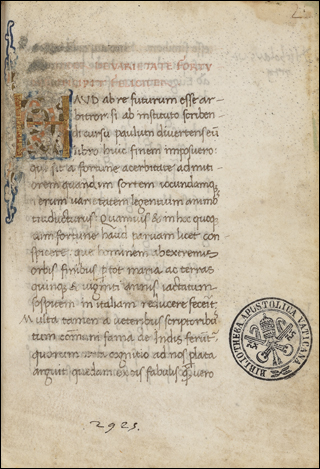 DE VARIETATE FORTV
INCIPIT FELICITER
HAVD ab re futurum esse ar
bitror si ab instituto scriben
di cursu paulum divertens eū
libro huic finem imposuero
qui sit a fortune acerbitate
orem quandam sortem iocundamq;
rerum varietatem legentium animū
traducturus Quamuis & in hoc quoq
eam fortune haud paruam licet con
spicere que hominem ab extremis
orbis finibus p tot maria ac terras
quinq & uiginti annis iactatum
sospitem in italiam reducere fecerit
Multa tamen a ueteribus scriptoribꝰ
tum communi fama de Indis ferunt
quorum cognitio ad nos plata
arguit quedam ex iis fabulis q uero
2925.
BIBLIOTHECA APOSTOLICA VATICANA